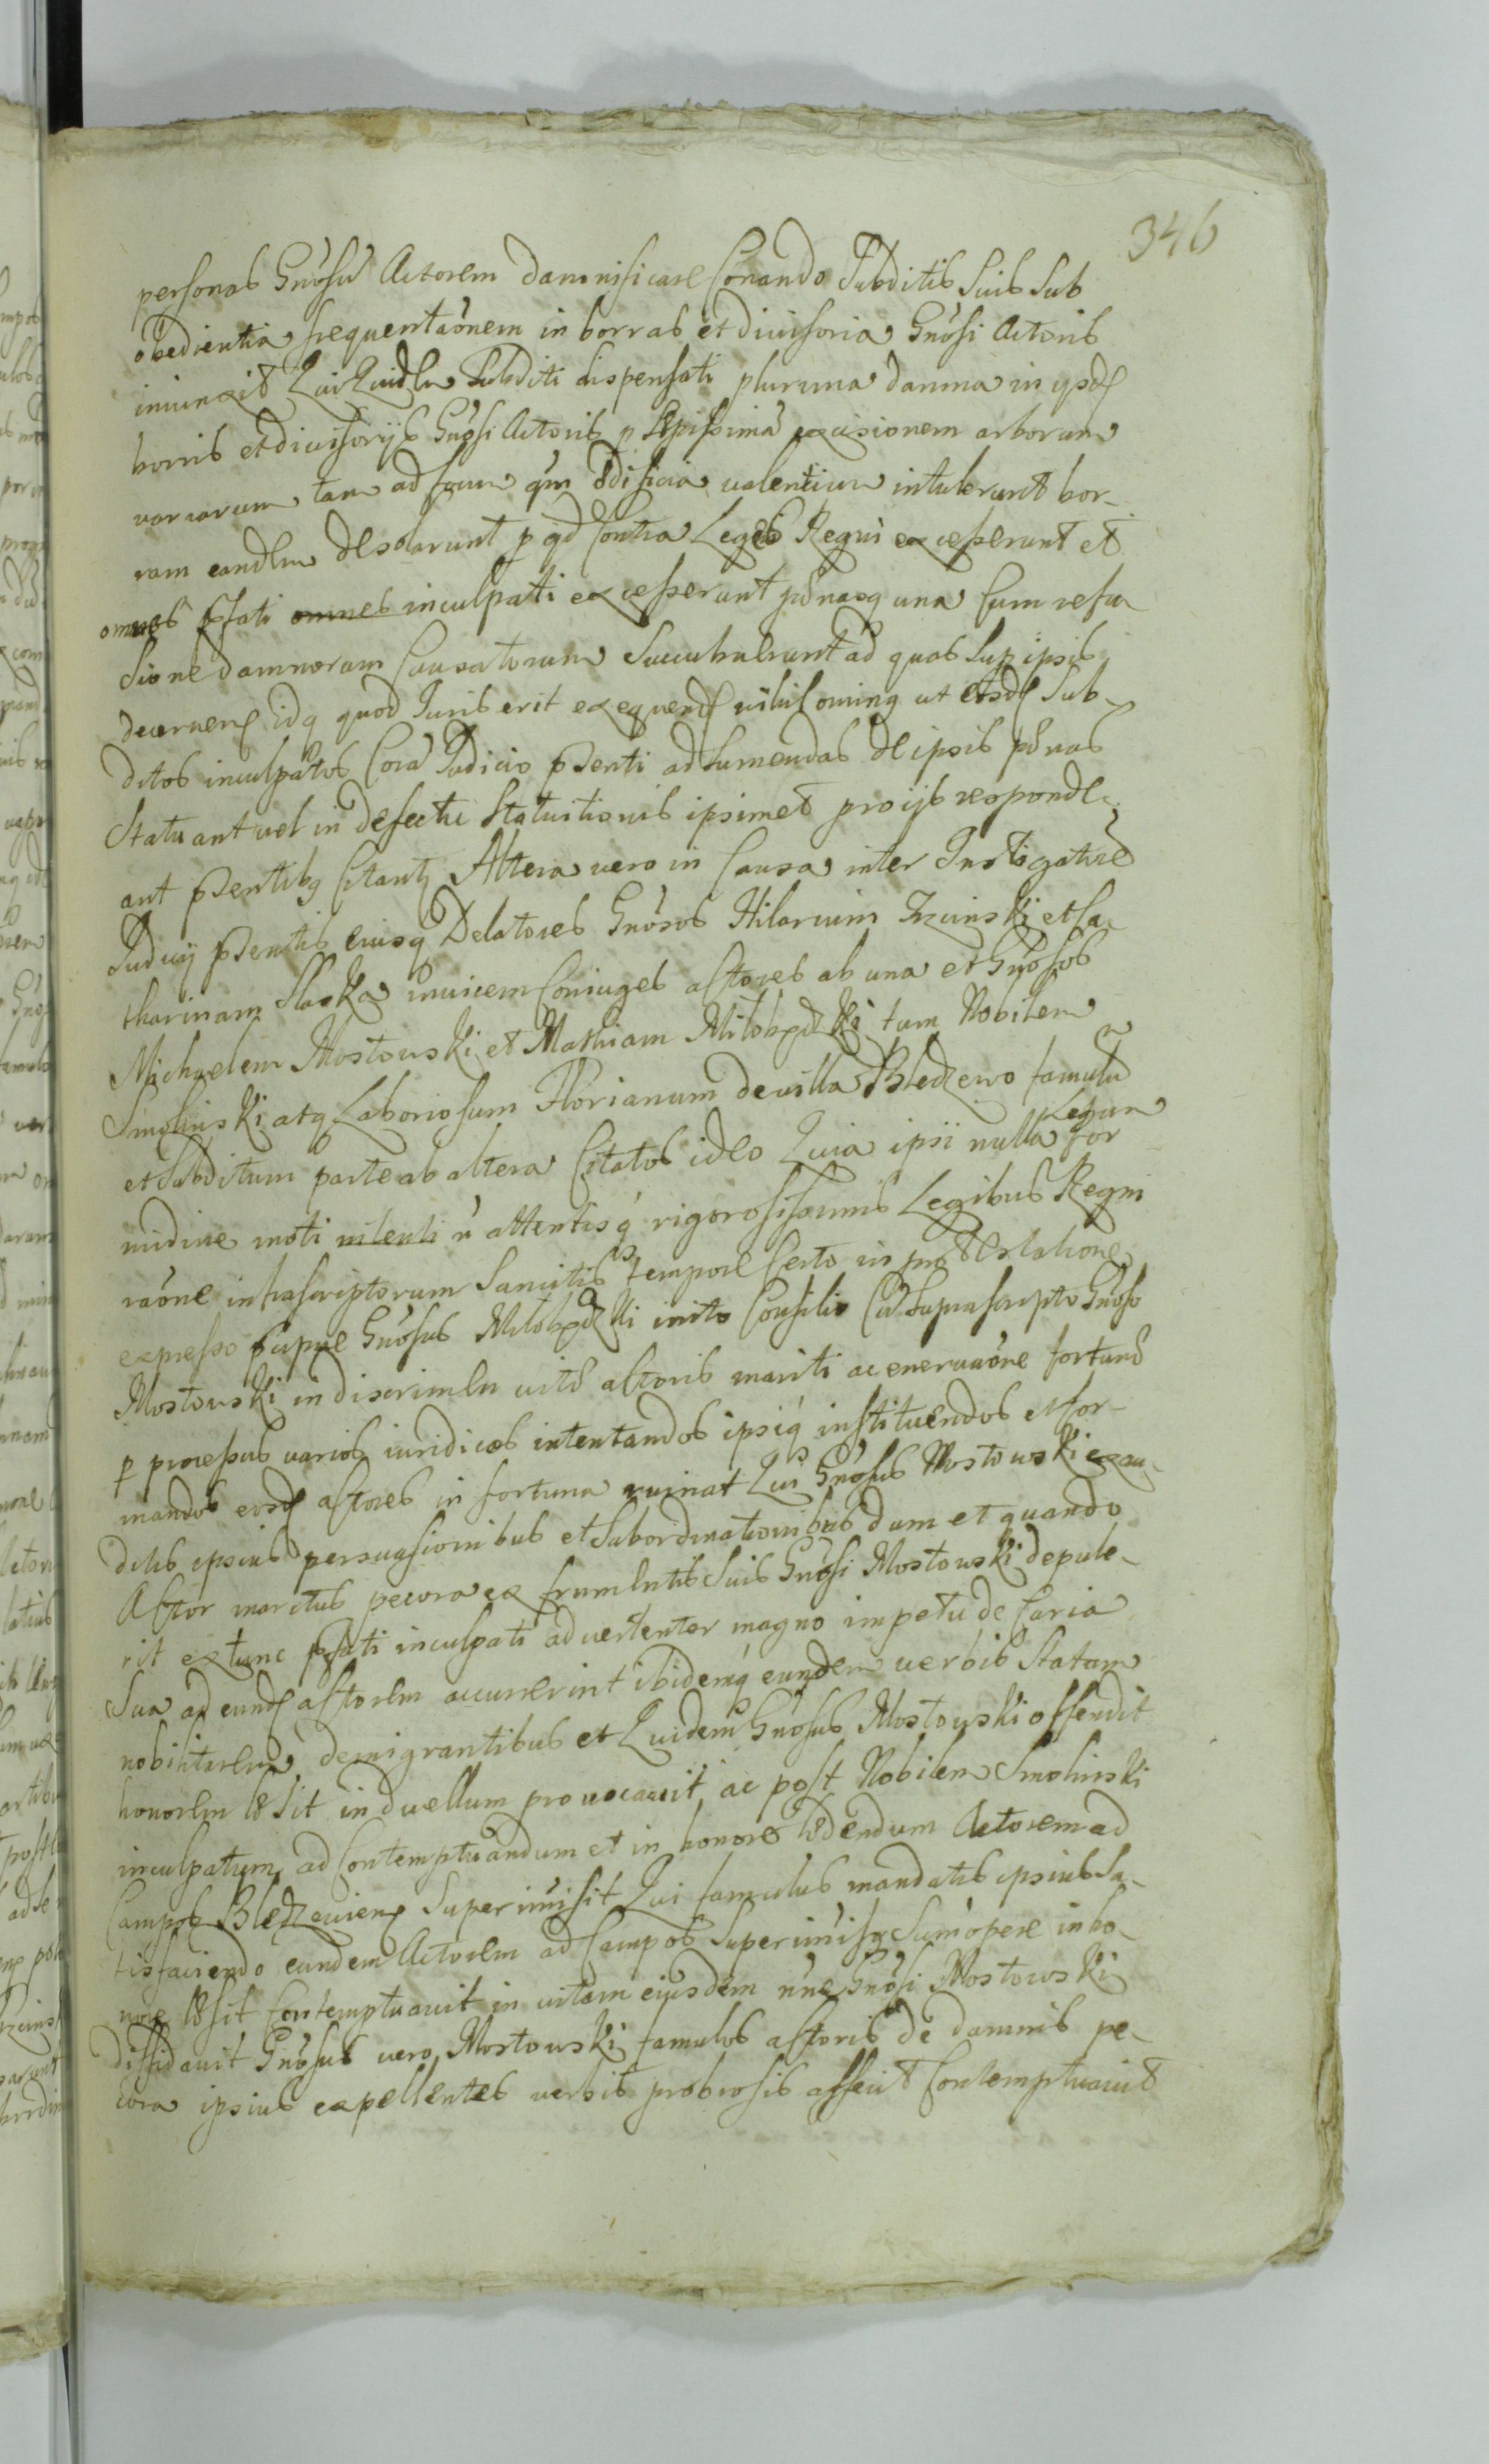 346
personas Gnosu Actorem damnificare Conando Subditis Suis Sub
obedientia frequentaonem in borras et divisoria Gnosi Actoris
iniunxit Qui Quidem Subditi dispensati plurima damna in ipsd
borris et divisorijs Gnosi Actoris p sepissimā excisionem arborum
variarum tam ad focum qm ædificia valentium intulerunt bor-
ram eandem desolarunt p qd Contra Leges Regni excesserunt et
omnes pfati omnes inculpati excesserunt pænasq una Cum refu
sione damnorum Causatorum Succubuerunt ad quas Sup ipsis
decernen idq quod Juris erit exequend nihilominq ut eosd Sub-
ditos inculpatos Corā Judicio pnti ad Sumendas de ipsis pænas
Statuant vel in defectu Statuitionis ipsimet pro ijs responde-
ant pntibq Citantr Altera vero in Causa inter Instigatore
Judicij pntis eiusq Delatores Gnosos Hilarium Jzcinski et Ca-
tharinam invicem Coniuges actores ab una et Gnosos
Michaelem Mostowski et Mathiam tum Nobilem
Smolinski atq Laboriosum Florianum de villa Bledzewo famulū
et Subditum parte ab altera Citatos ideo Quia ipsi nulla Legum for
midine moti nilenti n attentisq rigorosissimis Legibus Regni
raone infrascriptorum Sancitis tempore Certo in protestatione
expresso Gnosus inito Consilio Cū Suprascripto Gnoso
Mostowski in discrimen vitæ actoris mariti ac enervaone fortunæ
p processus varios iuridicos intentandos ipsiq instituendos et for-
mandos eosd actores in fortuna ruinat Qui Gnosus Mostowski exau-
ditis ipsius persuasionibus et Subordinationibus dum et quando
Actor maritus pecora ex frumentis Suis Gnosi Mostowski depule-
rit extunc pfati inculpati advertenter magno impetu de Curia
Sua ad eund actorem accurrerint ibidemq eundem verbis Statum
nobilitarem demigrantibus et Quidem Gnosus Mostowski offendit
honorem læsit in duellum provocavit, ac post Nobilem Smolinski
inculpatum ad Contemptuandum et in honore lædendum Actorem ad
Campos Bledzewien Superimisit Qui famulus mandatis ipsius Sa-
tisfaciendo eundem Actorem ad Campos Superimisq Sumopere in ho-
nore læsit Contemptuavit in vitam eiusdem nne Gnosi Mostowski
diffidavit Gnosus vero Mostowski famulos actoris de damnis pe-
cora ipsius expellentes verbis probrosis affecit Contemptuavit